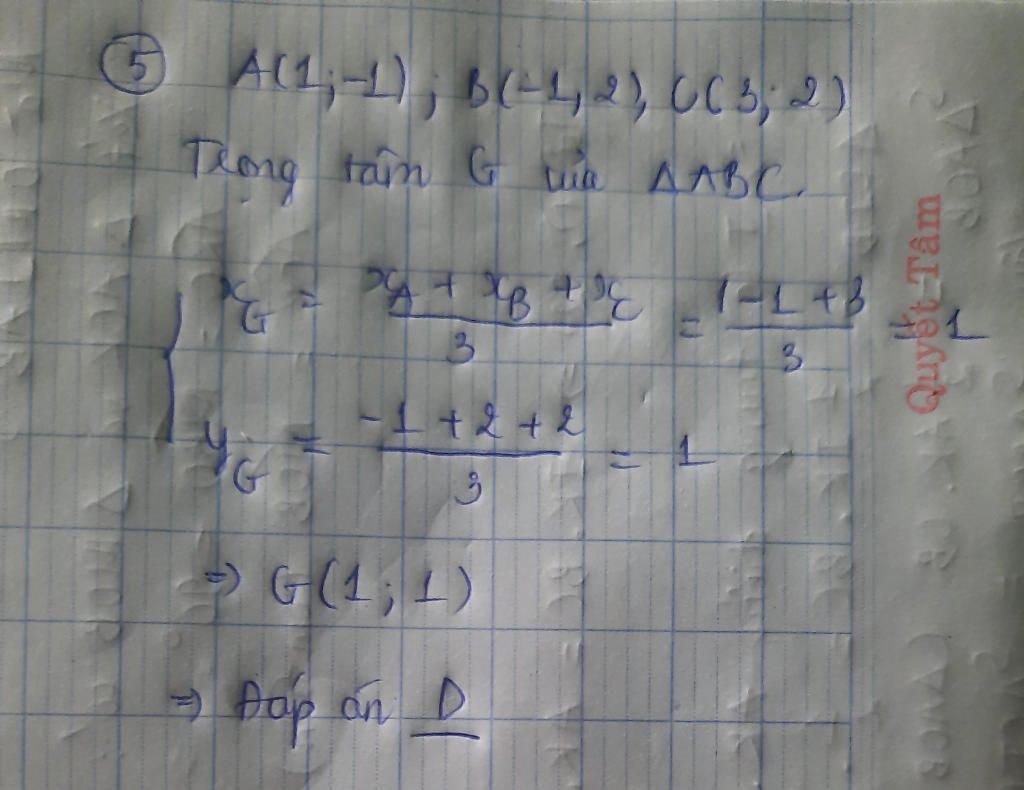 5 A(1;-1); B(-1;2), C(3; 2)
Trọng tâm G của ΔABC.
x_G = (x_A + x_B + x_C)/3 = (1-1+3)/3 = 1
y_G = (-1+2+2)/3 = 1
=> G(1; 1)
=> Đáp án D
Quyết Tâm